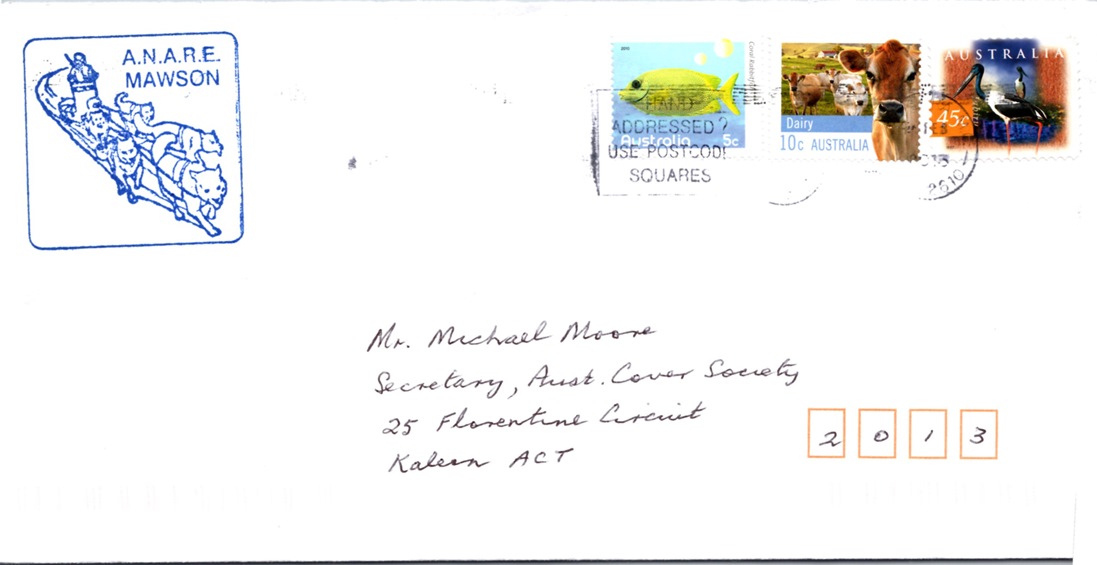 A.N.A.R.E.
MAWSON
2010
Coral Rabbitfish
Australia 5c
Dairy
10c AUSTRALIA
AUSTRALIA
45c
HAND
ADDRESSED?
USE POSTCODE
SQUARES
2610
Mr. Michael Moore
Secretary, Aust. Cover Society
25 Florentine Circuit
Kaleen ACT
2 0 1 3